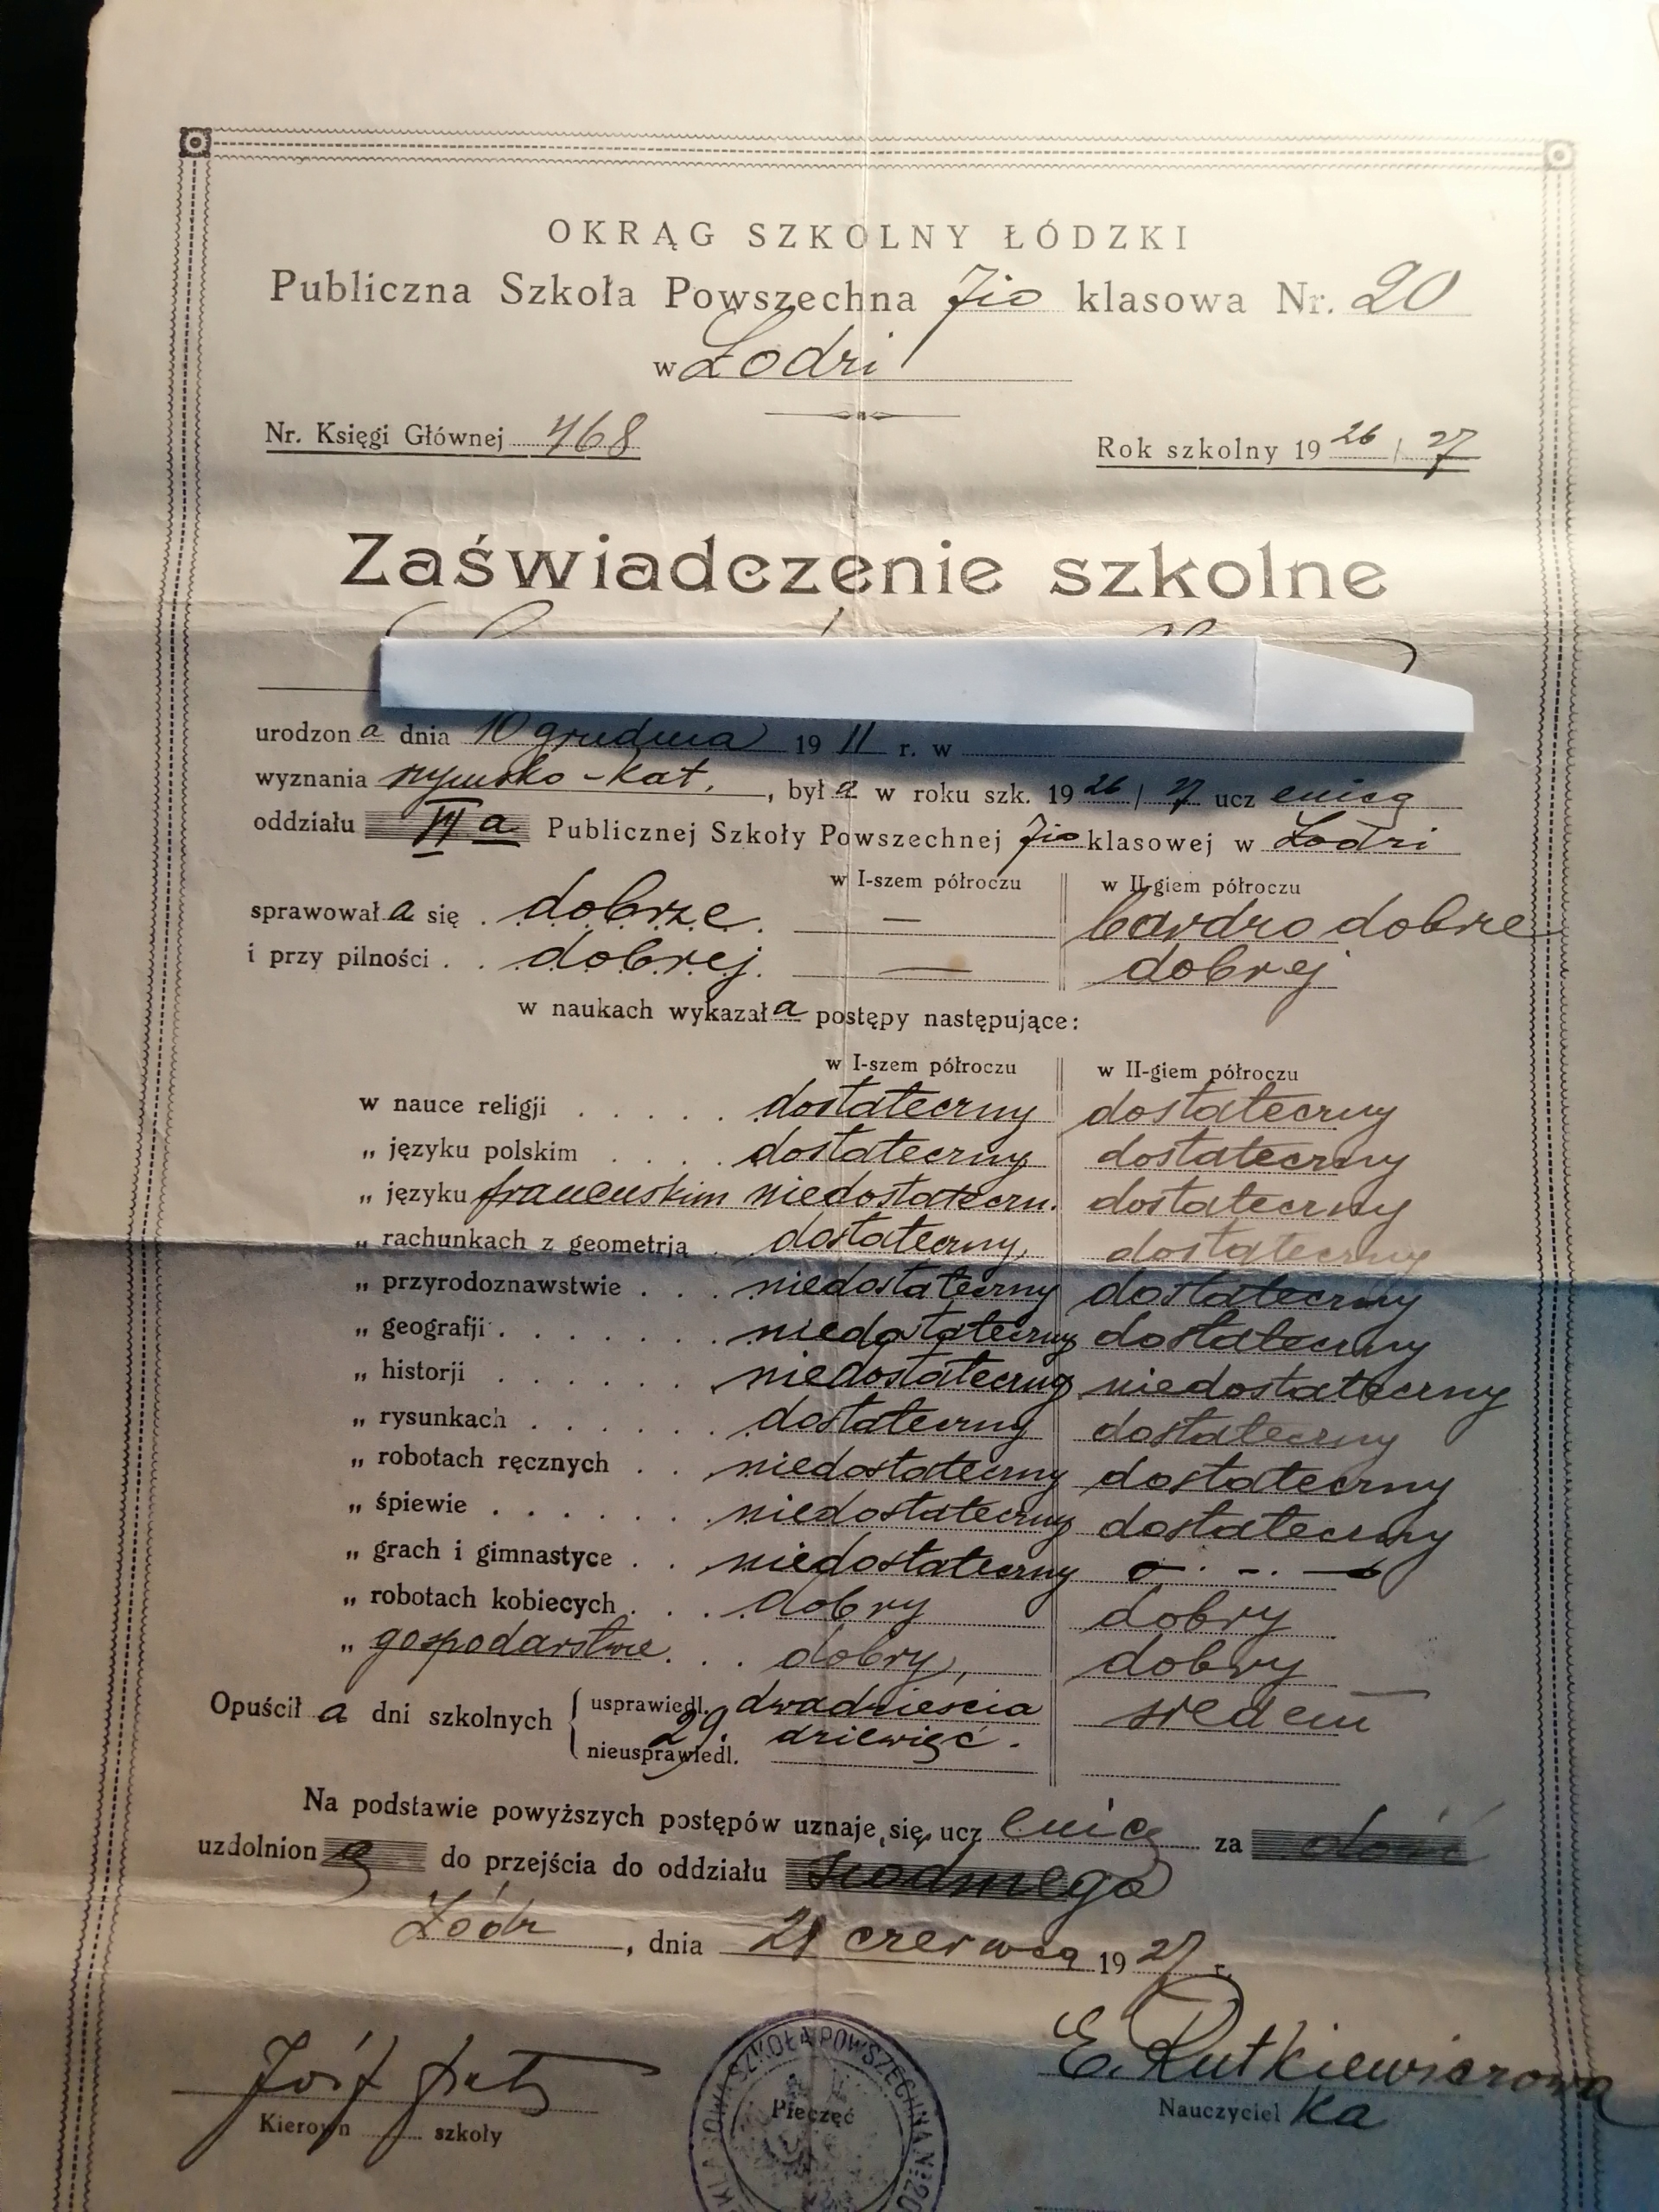 OKRĄG SZKOLNY ŁÓDZKI
Publiczna Szkoła Powszechna 7io klasowa Nr. 20
w Łodzi
Nr. Księgi Głównej 468
Rok szkolny 19 26 / 27
Zaświadczenie szkolne
urodzon a dnia 10 grudnia 19 11 r. w
wyznania rzymsko - kat. , był a w roku szk. 19 26 / 27 ucz enicą
oddziału VI a Publicznej Szkoły Powszechnej 7io klasowej w Łodzi
w I-szem półroczu w II-giem półroczu
sprawował a się . dobrze. — bardzo dobrze
i przy pilności . . dobrej. — dobrej
w naukach wykazał a postępy następujące:
w I-szem półroczu w II-giem półroczu
w nauce religji . . . . . dostateczny dostateczny
„ języku polskim . . . . dostateczny dostateczny
„ języku francuskim niedostateczn. dostateczny
„ rachunkach z geometrją . dostateczny, dostateczny
„ przyrodoznawstwie . . . niedostateczny dostateczny
„ geografji . . . . . . . niedostateczny dostateczny
„ historji . . . . . . niedostateczny niedostateczny
„ rysunkach . . . . . . dostateczny dostateczny
„ robotach ręcznych . . niedostateczny dostateczny
„ śpiewie . . . . . . niedostateczny dostateczny
„ grach i gimnastyce . . niedostateczny — . - . —
„ robotach kobiecych . . . dobry dobry
„ gospodarstwie . . . dobry, dobry
Opuścił a dni szkolnych usprawiedl. dwadzieścia siedem
29. dziewięć.
nieusprawiedl.
Na podstawie powyższych postępów uznaje się ucz enicę za dość
uzdolnion ą do przejścia do oddziału siódmego
Łódź , dnia 28 czerwca 19 27 r.
Józef
Kierown szkoły
SZKOŁA POWSZECHNA № 20
Pieczęć
E. Rutkiewiczowa
Nauczyciel ka